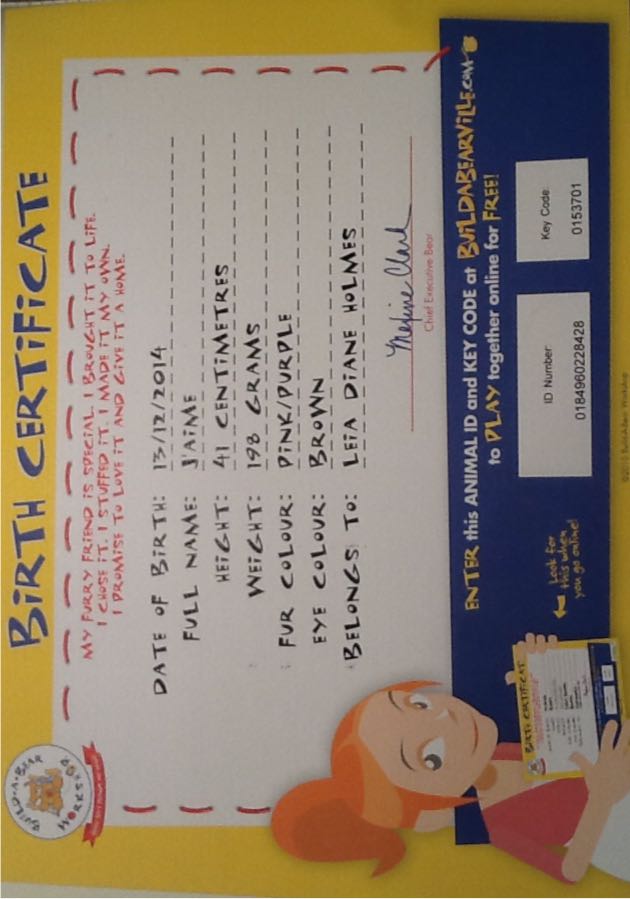 BIRTH CERTIFICATE
BUILD-A-BEAR
WORKSHOP
MY FURRY FRIEND IS SPECIAL. I BROUGHT IT TO LIFE.
I CHOSE IT. I STUFFED IT. I MADE IT MY OWN.
I PROMISE TO LOVE IT AND GIVE IT A HOME.
DATE OF BIRTH: 13/12/2014
FULL NAME: JAIME
HEIGHT: 41 CENTIMETRES
WEIGHT: 198 GRAMS
FUR COLOUR: PINK/PURPLE
EYE COLOUR: BROWN
BELONGS TO: LEIA DIANE HOLMES
Maxine Clark
Chief Executive Bear
ENTER this ANIMAL ID and KEY CODE at BUILDABEARVILLE.COM
to PLAY together online for FREE!
Look for
this when
you go online!
ID Number:
0184960228428
Key Code:
0153701
BIRTH CERTIFICAT